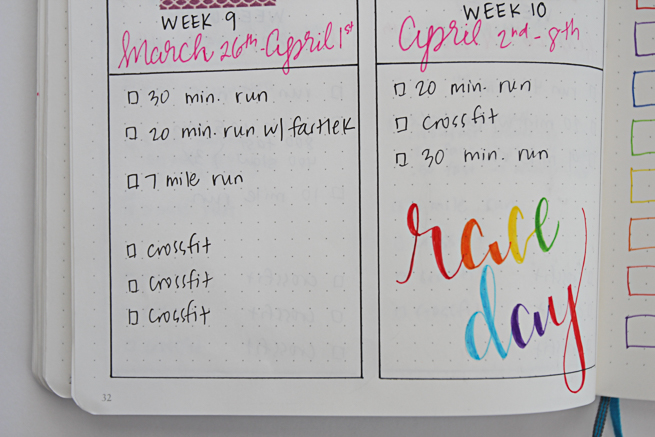 WEEK 9
March 26th - April 1st
30 min. run
20 min. run w/ fartlek
7 mile run
crossfit
crossfit
crossfit
32
WEEK 10
April 2nd - 8th
20 min. run
crossfit
30 min. run
race
day